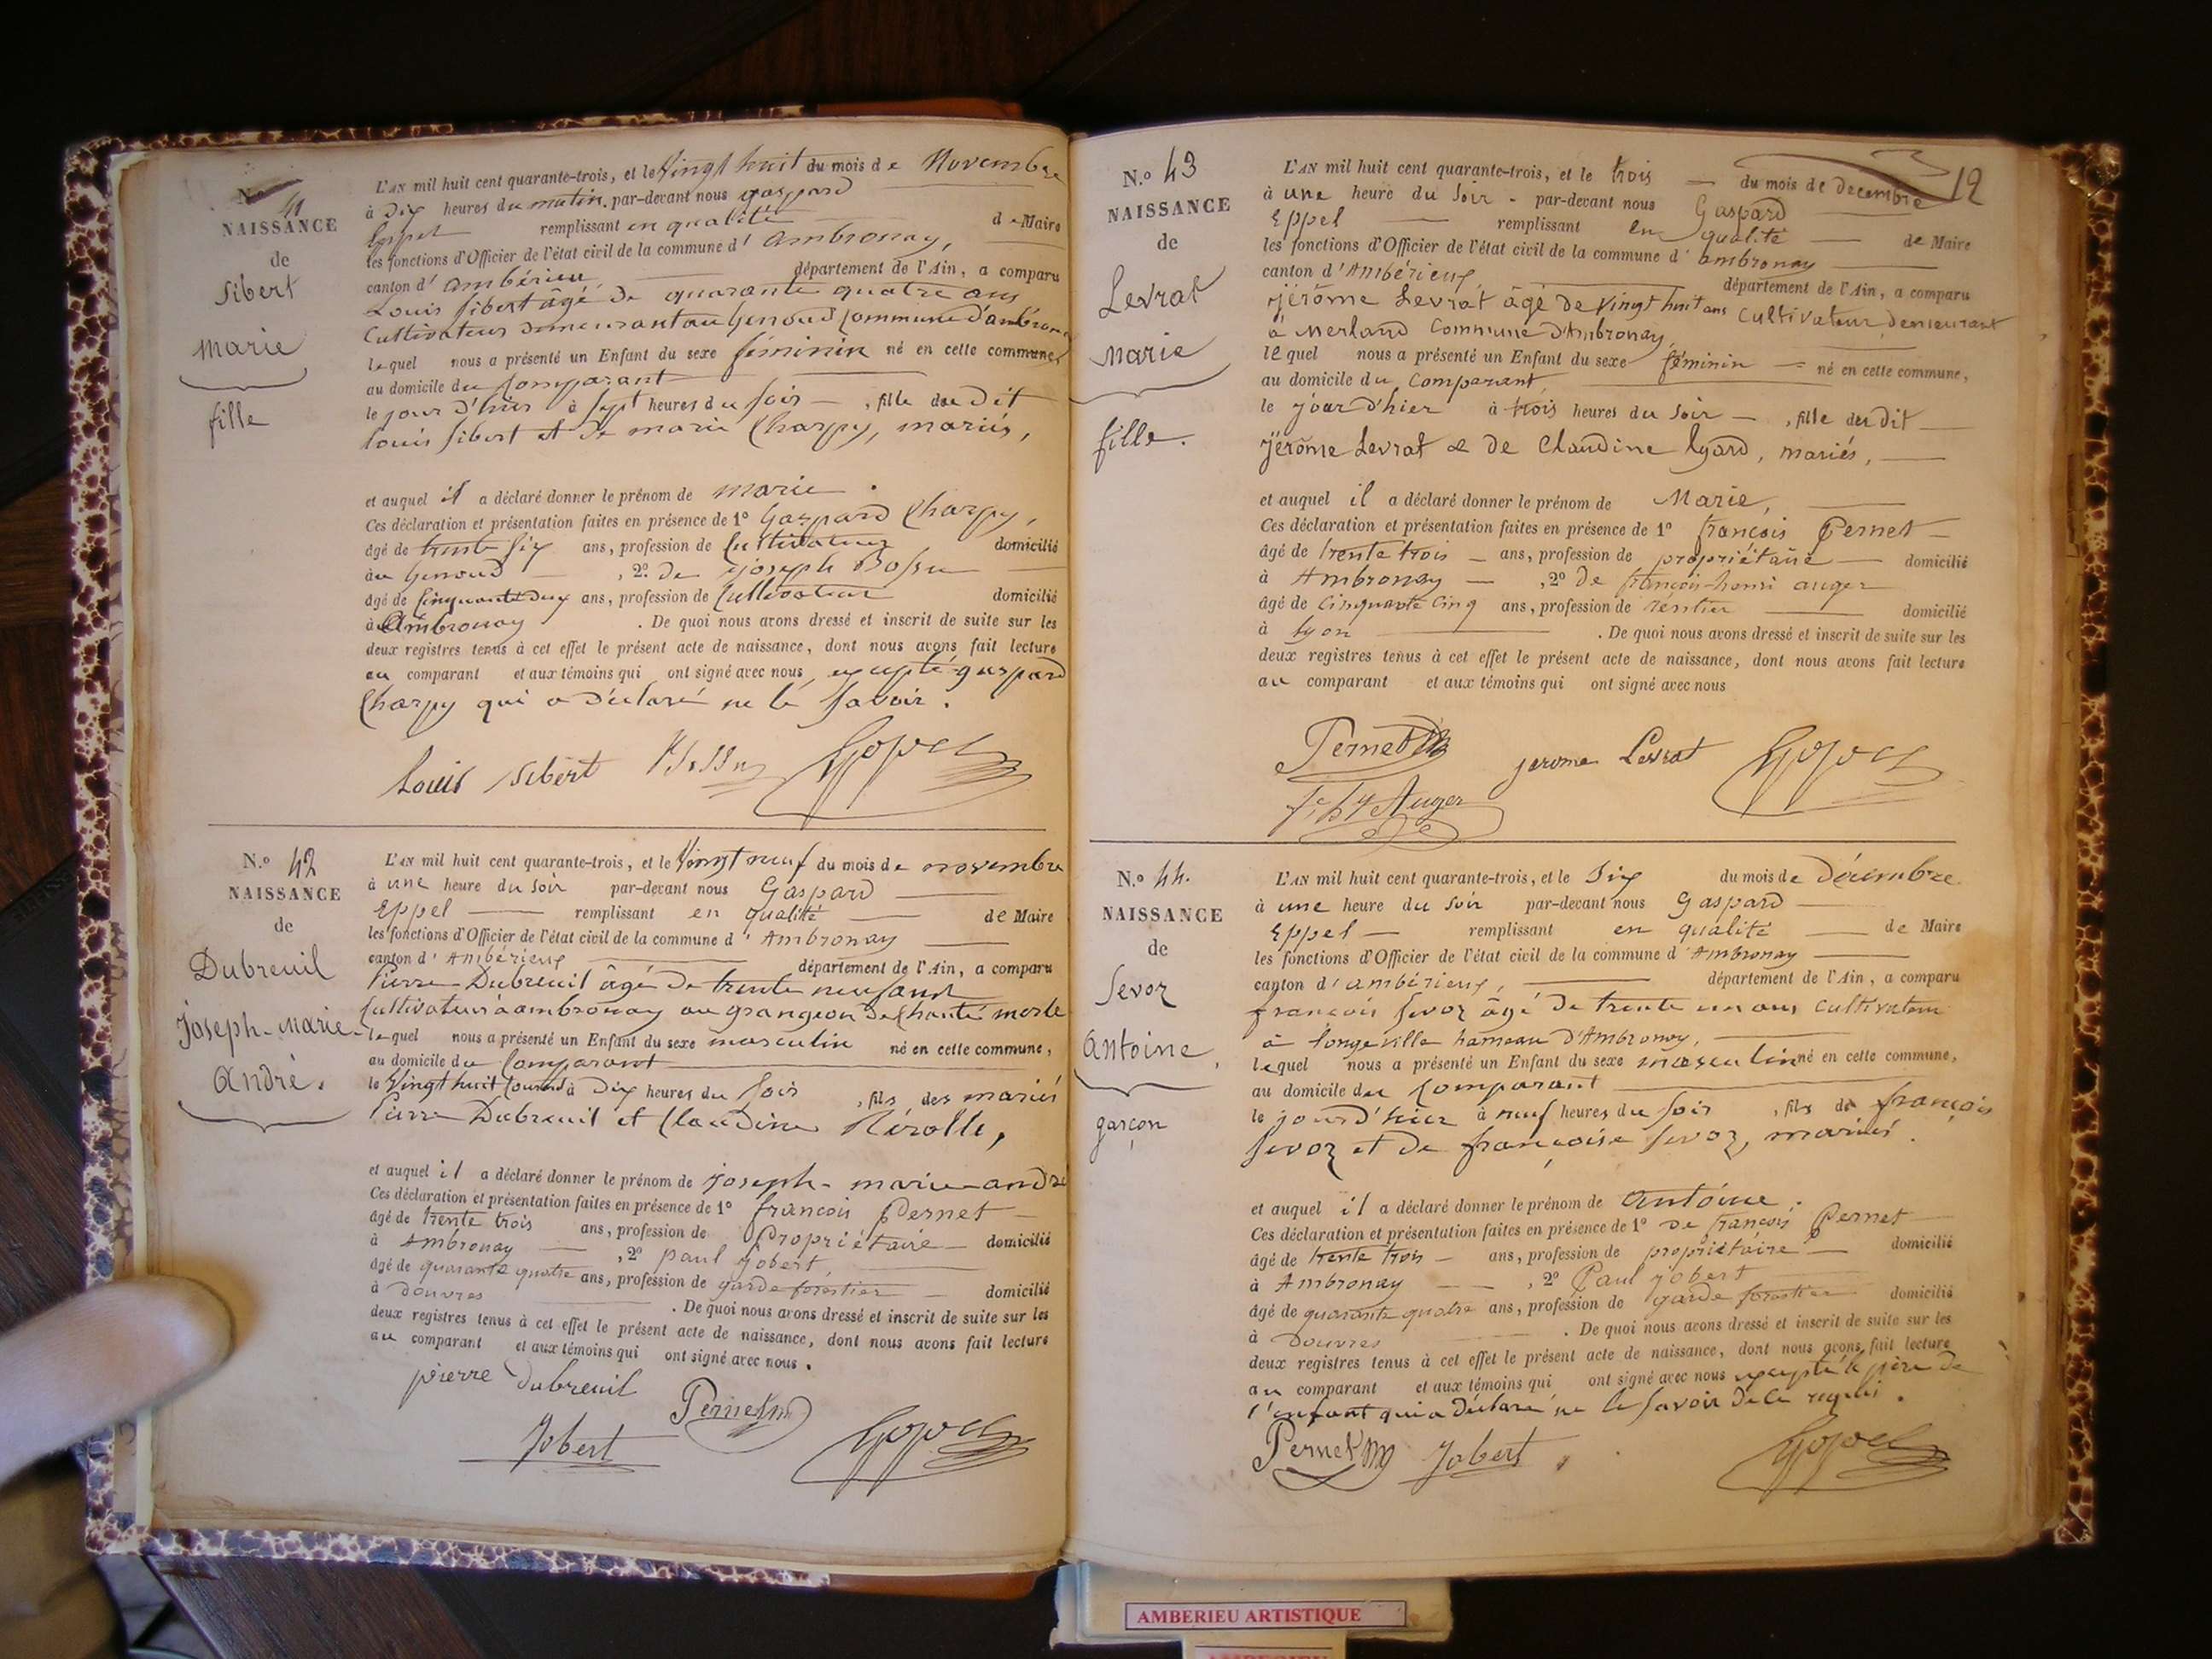 N.o 41
NAISSANCE
de
Sibert
Marie
fille
L'AN mil huit cent quarante-trois, et le Vingt huit du mois de Novembre
à Dix heures du matin. par-devant nous gaspard
Eppel remplissant en qualité de Maire
les fonctions d'Officier de l'état civil de la commune d' ambronay,
canton d' ambérieu, département de l'Ain, a comparu
Louis Sibert âgé de quarante quatre ans
Cultivateur demeurant au Genoud Commune d'ambronay
lequel nous a présenté un Enfant du sexe féminin né en cette commune,
au domicile du Comparant
le jour d'hier à Sept heures du soir , fille du dit
Louis Sibert et de marie Charpy, mariés,
et auquel il a déclaré donner le prénom de marie.
Ces déclaration et présentation faites en présence de 1o Gaspard Charpy,
âgé de trente Six ans, profession de Cultivateur domicilié
au Genoud , 2o. de joseph Bossu
âgé de Cinquante deux ans, profession de Cultivateur domicilié
à Ambronay . De quoi nous avons dressé et inscrit de suite sur les
deux registres tenus à cet effet le présent acte de naissance, dont nous avons fait lecture
au comparant et aux témoins qui ont signé avec nous, excepté gaspard
Charpy qui a déclaré ne le Savoir.
Louis Sibert Bossu
N.o 42
NAISSANCE
de
Dubreuil
Joseph-Marie-
André.
L'AN mil huit cent quarante-trois, et le Vingt neuf du mois de novembre
à une heure du Soir par-devant nous Gaspard
Eppel remplissant en qualité de Maire
les fonctions d'Officier de l'état civil de la commune d' Ambronay
canton d' Ambérieux département de l'Ain, a comparu
Pierre Dubreuil âgé de trente neuf ans
Cultivateur à ambronay au grangeon de Chante merle
lequel nous a présenté un Enfant du sexe masculin né en cette commune,
au domicile du Comparant
le Vingt huit Courant à Dix heures du Soir , fils des mariés
Pierre Dubreuil et Claudine Nérolle,
et auquel il a déclaré donner le prénom de joseph-marie-andré
Ces déclaration et présentation faites en présence de 1o françois Pernet
âgé de trente trois ans, profession de Propriétaire domicilié
à Ambronay , 2o paul Jobert,
âgé de quarante quatre ans, profession de garde forestier domicilié
à Douvres . De quoi nous avons dressé et inscrit de suite sur les
deux registres tenus à cet effet le présent acte de naissance, dont nous avons fait lecture
au comparant et aux témoins qui ont signé avec nous.
pierre Dubreuil Pernet
Jobert
12
N.o 43
NAISSANCE
de
Levrat
Marie
fille.
L'AN mil huit cent quarante-trois, et le trois du mois de Decembre
à une heure du Soir - par-devant nous Gaspard
Eppel remplissant en qualité de Maire
les fonctions d'Officier de l'état civil de la commune d' ambronay
canton d' Ambérieux, département de l'Ain, a comparu
Jérôme Levrat âgé de Vingt huit ans Cultivateur demeurant
à Merland Commune d'Ambronay,
lequel nous a présenté un Enfant du sexe féminin né en cette commune,
au domicile du Comparant,
le jour d'hier à trois heures du Soir , fille du dit
Jérôme Levrat & de Claudine lyard, mariés,
et auquel il a déclaré donner le prénom de Marie,
Ces déclaration et présentation faites en présence de 1o françois Pernet
âgé de trente trois ans, profession de propriétaire domicilié
à Ambronay , 2o de françois-henri auger
âgé de Cinquante Cinq ans, profession de rentier domicilié
à Lyon . De quoi nous avons dressé et inscrit de suite sur les
deux registres tenus à cet effet le présent acte de naissance, dont nous avons fait lecture
au comparant et aux témoins qui ont signé avec nous
Pernet jerome Levrat
Auger
N.o 44.
NAISSANCE
de
Sevoz
Antoine,
garçon
L'AN mil huit cent quarante-trois, et le Six du mois de Décembre
à une heure du Soir par-devant nous Gaspard
Eppel remplissant en qualité de Maire
les fonctions d'Officier de l'état civil de la commune d' Ambronay
canton d' ambérieux, département de l'Ain, a comparu
françois Sevoz âgé de trente un ans Cultivateur
à longeville hameau d'Ambronay,
lequel nous a présenté un Enfant du sexe masculin né en cette commune,
au domicile du Comparant
le jour d'hier à neuf heures du Soir , fils de françois
Sevoz et de françoise Sevoz, mariés.
et auquel il a déclaré donner le prénom de antoine.
Ces déclaration et présentation faites en présence de 1o de françois Pernet
âgé de trente trois ans, profession de propriétaire domicilié
à Ambronay , 2o Paul jobert
âgé de quarante quatre ans, profession de garde forestier domicilié
à Douvres . De quoi nous avons dressé et inscrit de suite sur les
deux registres tenus à cet effet le présent acte de naissance, dont nous avons fait lecture
au comparant et aux témoins qui ont signé avec nous excepté le père de
l'enfant qui a déclaré ne le Savoir de ce requis.
Pernet Jobert
AMBERIEU ARTISTIQUE